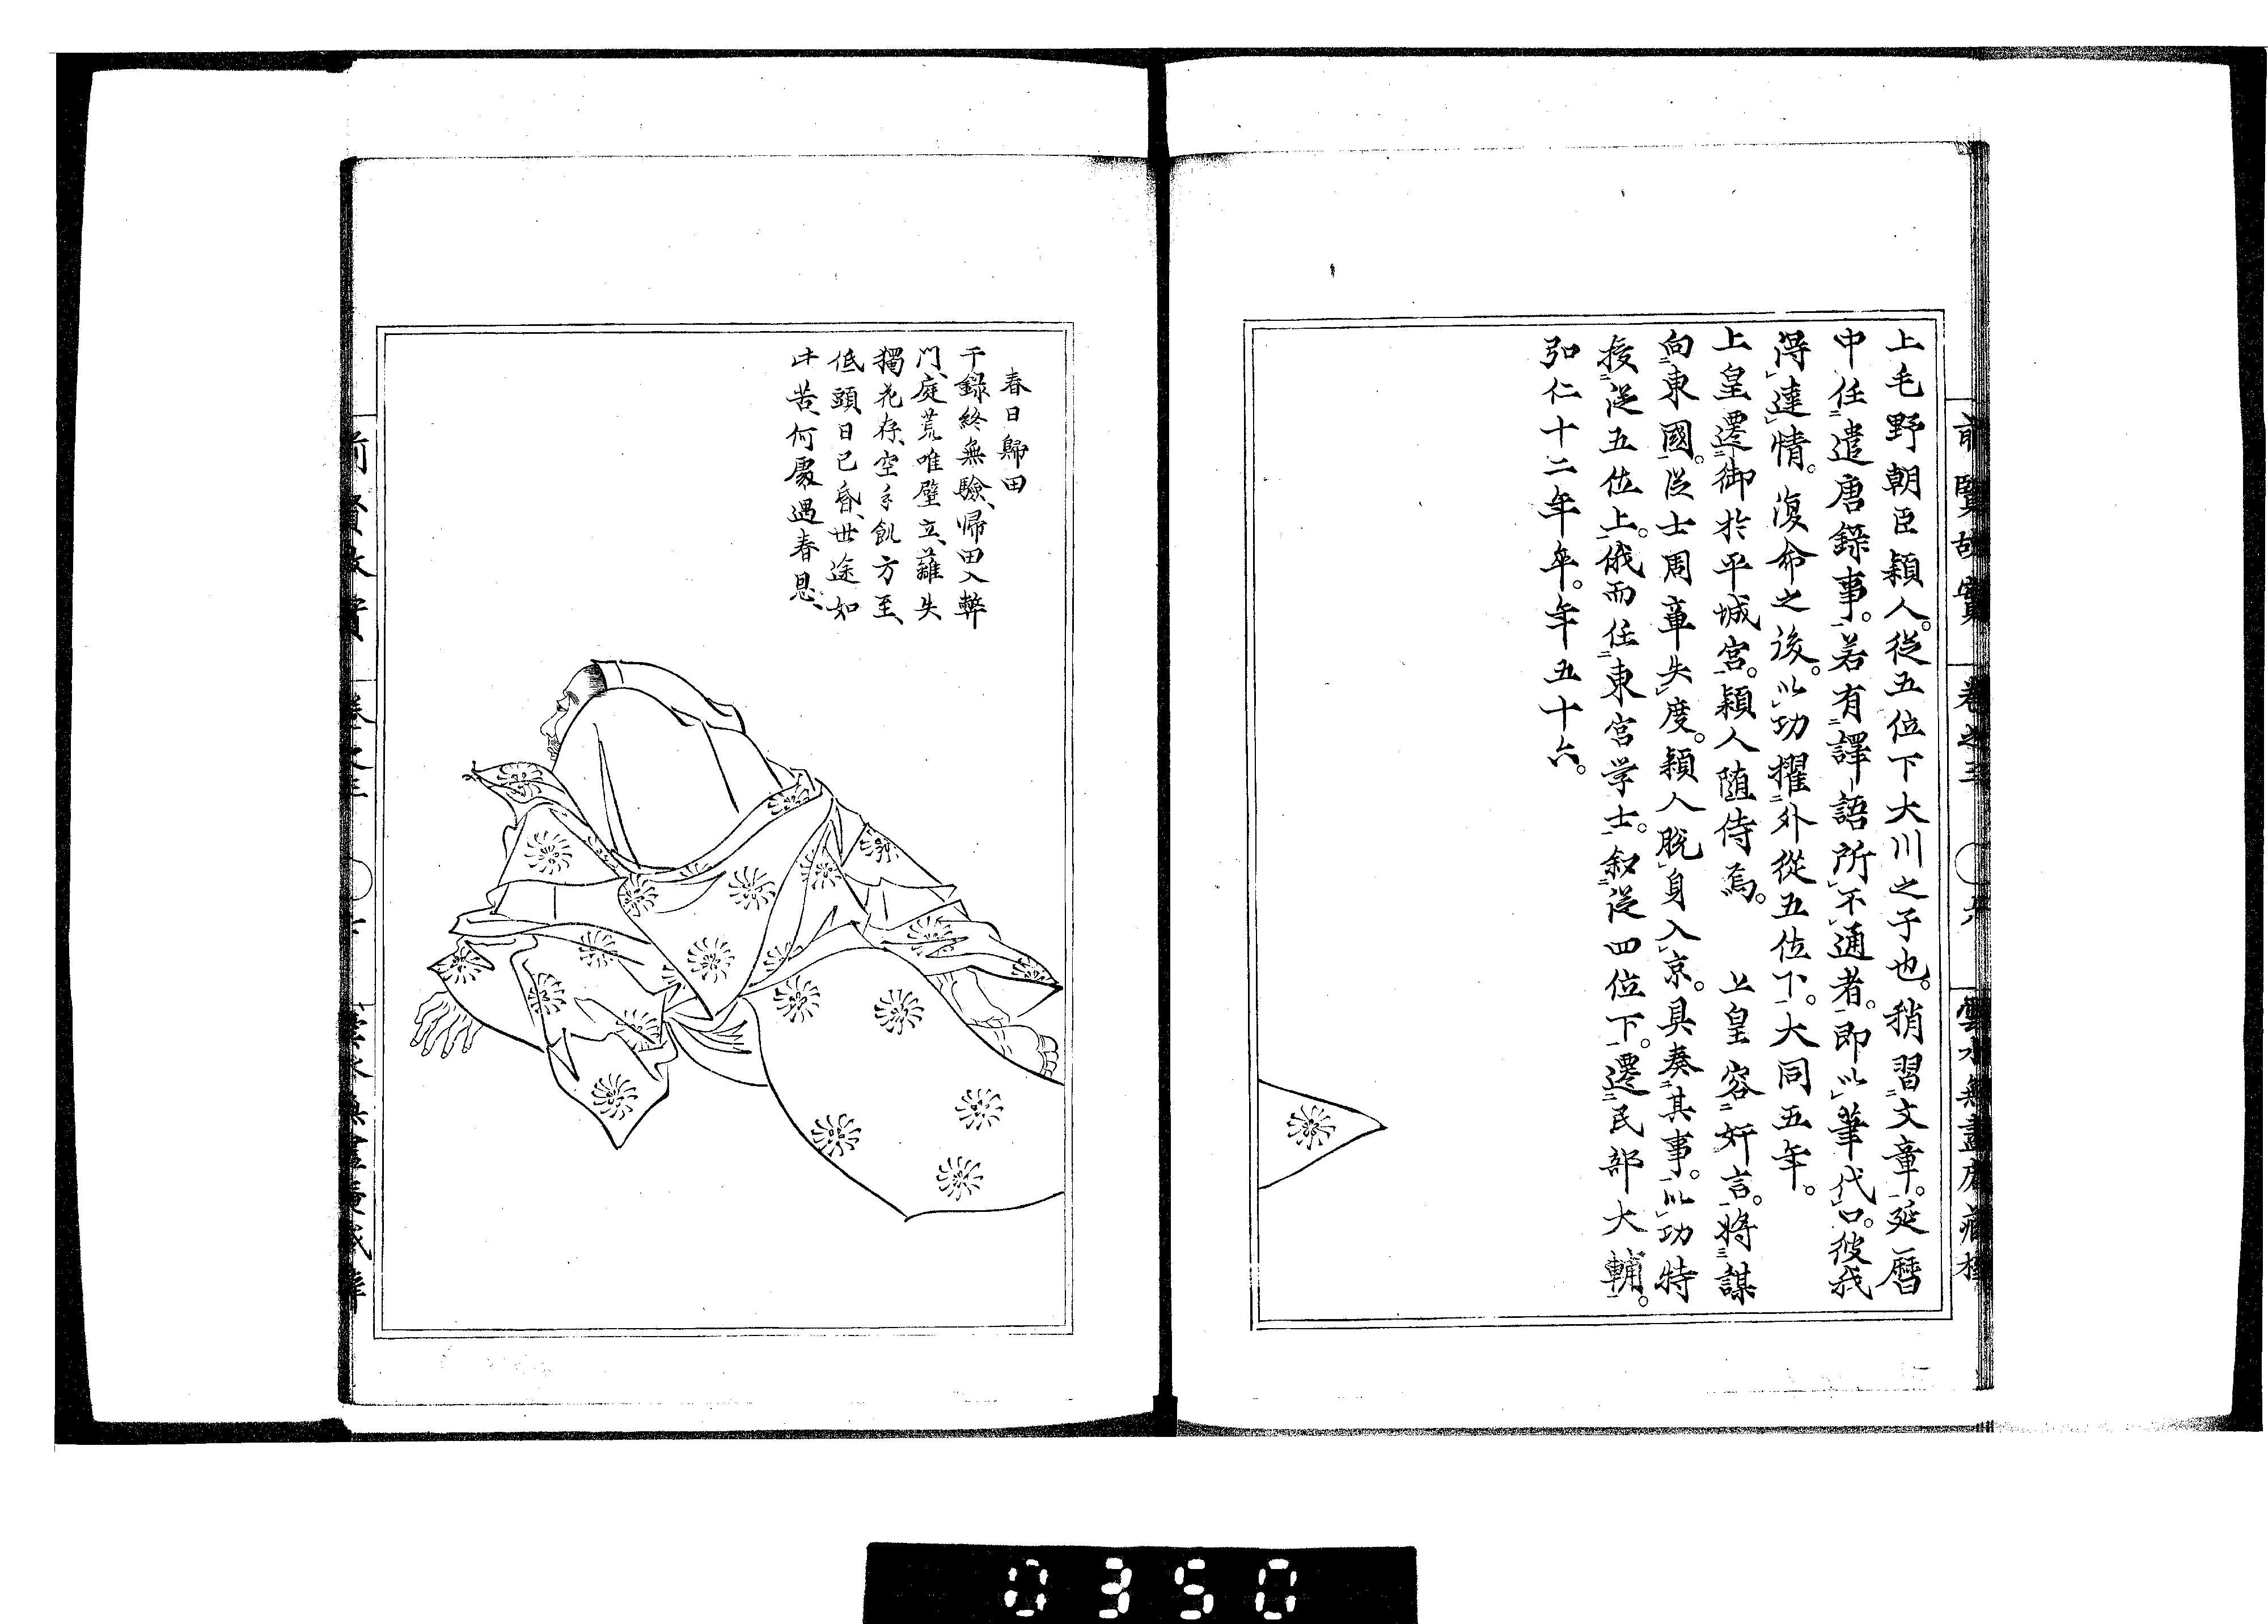 上毛野朝臣穎人。從五位下大川之子也。稍習文章。延曆
中任遣唐錄事。若有譯語所不通者。即以筆代口。彼我
得達情。復命之後。以功擢外從五位下。大同五年。
上皇遷御於平城宮。穎人随侍焉。　上皇容奸言。將謀
向東國。從士周章失度。穎人脫身入京。具奏其事。以功特
授從五位上。俄而任東宮学士。叙從四位下。遷民部大輔。
弘仁十二年卒。年五十六。
前賢故實　卷之三　雲水無盡庵藏梓
春日歸田
干錄終無驗、帰田入弊
門、庭荒唯壁立、蘺失
獨花存、空手飢方至、
低頭日已昏、世途如
此苦、何處遇春恩、
前賢故實　卷之三
0350